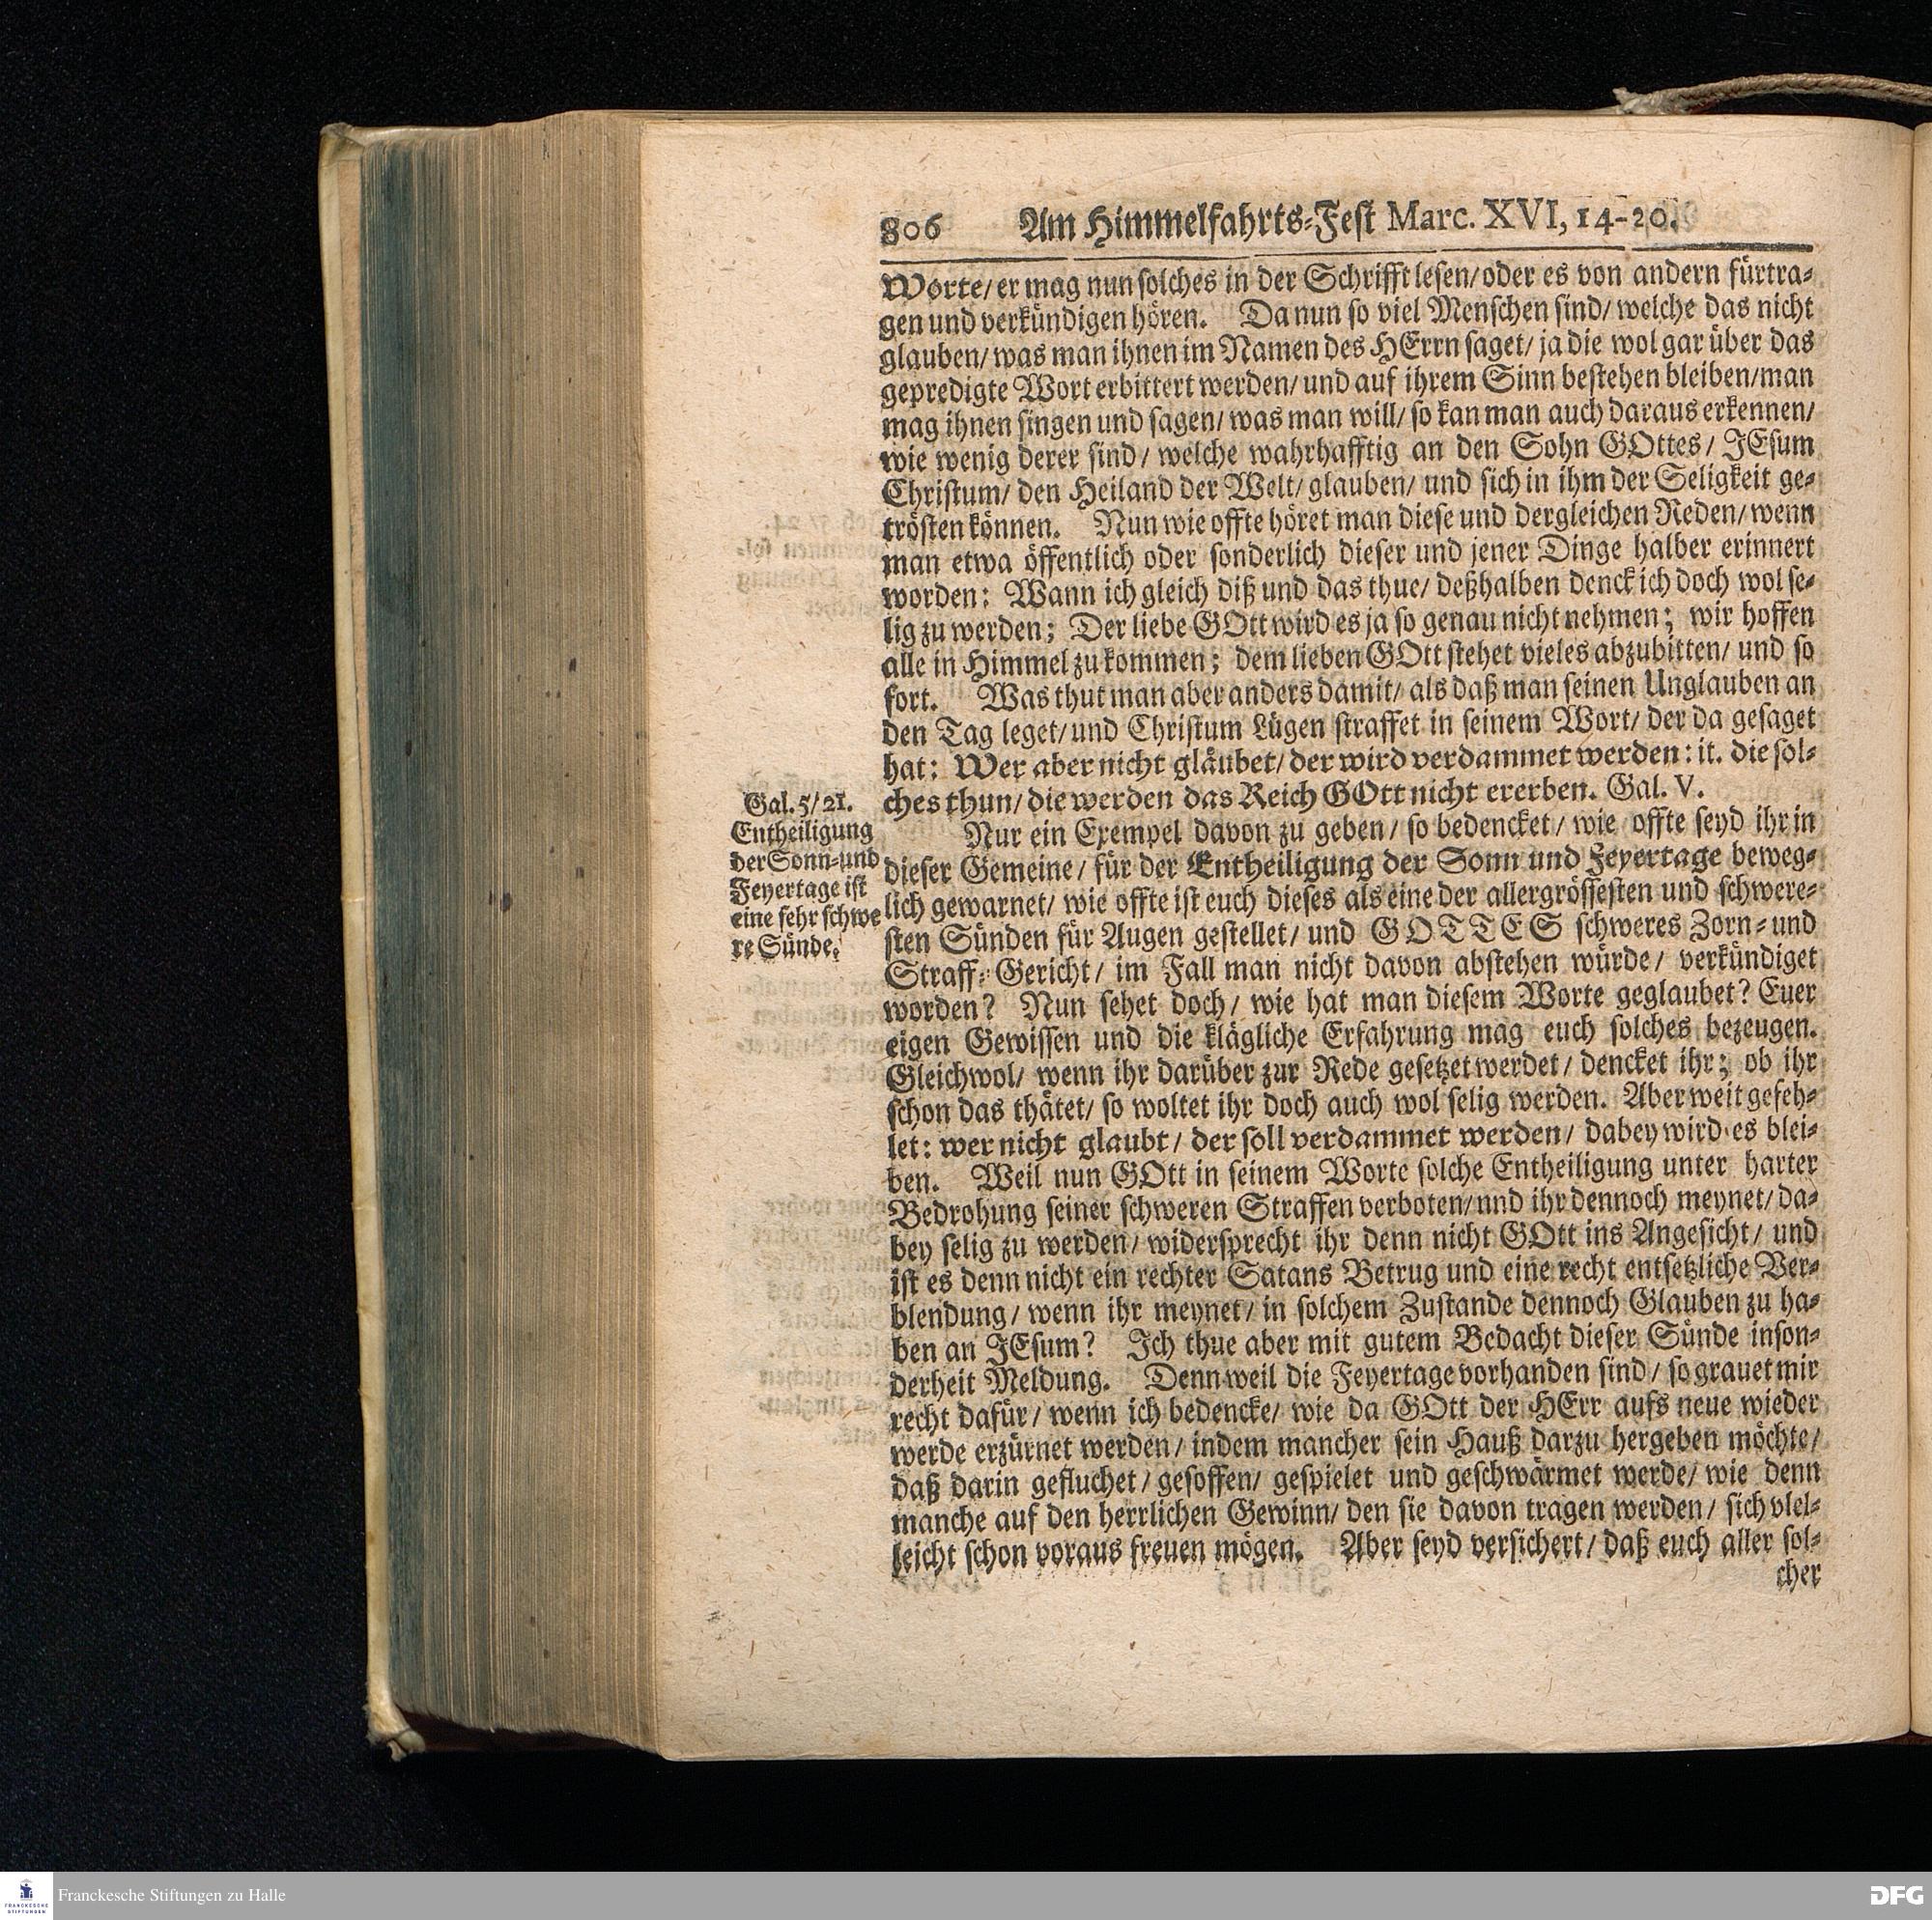 806 Am Himmelfahrts-Fest Marc. XVI, 14-20.
Worte/ er mag nun solches in der Schrifft lesen/ oder es von andern fürtra-
gen und verkündigen hören. Da nun so viel Menschen sind/ welche das nicht
glauben/ was man ihnen im Namen des HErrn saget/ ja die wol gar über das
gepredigte Wort erbittert werden/ und auf ihrem Sinn bestehen bleiben/ man
mag ihnen singen und sagen/ was man will/ so kan man auch daraus erkennen/
wie wenig derer sind/ welche wahrhafftig an den Sohn GOttes/ JEsum
Christum/ den Heiland der Welt/ glauben/ und sich in ihm der Seligkeit ge-
trösten können. Nun wie offte höret man diese und dergleichen Reden/ wenn
man etwa öffentlich oder sonderlich dieser und jener Dinge halber erinnert
worden: Wann ich gleich diß und das thue/ deßhalben denck ich doch wol se-
lig zu werden; Der liebe GOtt wird es ja so genau nicht nehmen; wir hoffen
alle in Himmel zu kommen; dem lieben GOtt stehet vieles abzubitten/ und so
fort. Was thut man aber anders damit/ als daß man seinen Unglauben an
den Tag leget/ und Christum Lügen straffet in seinem Wort/ der da gesaget
hat: Wer aber nicht gläubet/ der wird verdammet werden: it. die sol-
ches thun/ die werden das Reich GOtt nicht ererben. Gal. V.
Gal. 5/ 21.
Entheiligung
der Sonn- und
Feyertage ist
eine sehr schwe
re Sünde.
Nur ein Exempel davon zu geben/ so bedencket/ wie offte seyd ihr in
dieser Gemeine/ für der Entheiligung der Sonn und Feyertage beweg-
lich gewarnet/ wie offte ist euch dieses als eine der allergrössesten und schwere-
sten Sünden für Augen gestellet/ und GOTTES schweres Zorn- und
Straff- Gericht/ im Fall man nicht davon abstehen würde/ verkündiget
worden? Nun sehet doch/ wie hat man diesem Worte geglaubet? Euer
eigen Gewissen und die klägliche Erfahrung mag euch solches bezeugen.
Gleichwol/ wenn ihr darüber zur Rede gesetzet werdet/ dencket ihr; ob ihr
schon das thätet/ so woltet ihr doch auch wol selig werden. Aber weit gefeh-
let: wer nicht glaubt/ der soll verdammet werden/ dabey wird es blei-
ben. Weil nun GOtt in seinem Worte solche Entheiligung unter harter
Bedrohung seiner schweren Straffen verboten/ nnd ihr dennoch meynet/ da-
bey selig zu werden/ widersprecht ihr denn nicht GOtt ins Angesicht/ und
ist es denn nicht ein rechter Satans Betrug und eine recht entsetzliche Ver-
blendung/ wenn ihr meynet/ in solchem Zustande dennoch Glauben zu ha-
ben an JEsum? Ich thue aber mit gutem Bedacht dieser Sünde inson-
derheit Meldung. Denn weil die Feyertage vorhanden sind/ so grauet mir
recht dafür/ wenn ich bedencke/ wie da GOtt der HErr aufs neue wieder
werde erzürnet werden/ indem mancher sein Hauß darzu hergeben möchte/
daß darin gefluchet/ gesoffen/ gespielet und geschwärmet werde/ wie denn
manche auf den herrlichen Gewinn/ den sie davon tragen werden/ sich vlel-
leicht schon voraus freuen mögen. Aber seyd versichert/ daß euch aller sol-
cher
FRANCKESCHE
STIFTUNGEN
Franckesche Stiftungen zu Halle
DFG